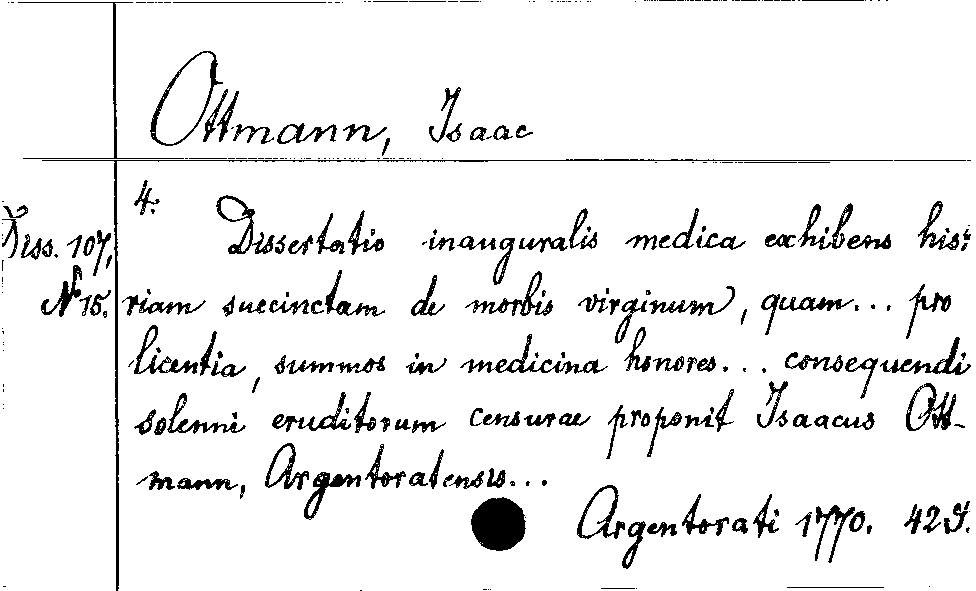 Ottmann, Isaac
4:
Diss. 107,
No 15.
Dissertatio inauguralis medica exhibens his:
riam succinctam de morbis virginum, quam... pro
licentia, summos in medicina honores... consequendi
solenni eruditorum censurae proponit Isaacus Ott-
mann, Argentoratensis...
Argentorati 1770. 42 S.